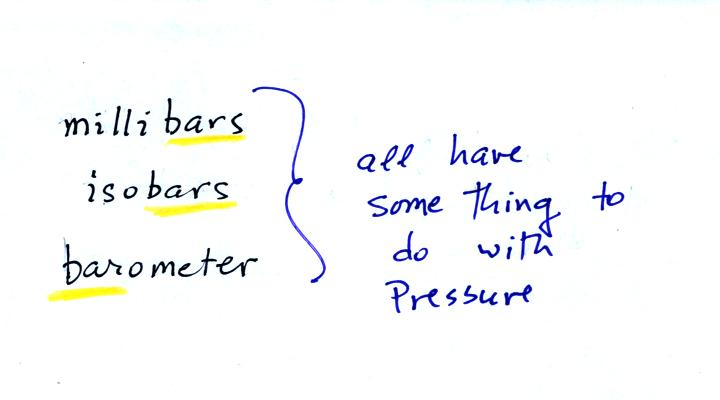 millibars
isobars
barometer
all have
some thing to
do with
Pressure